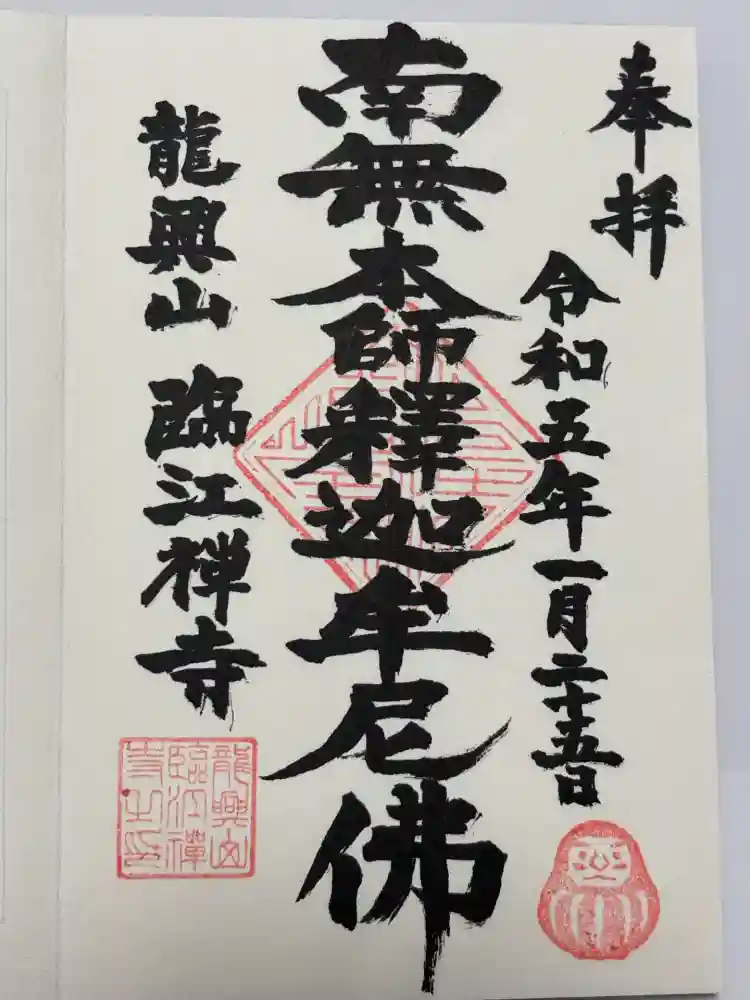 奉拝
令和五年一月二十五日
南無本師釋迦牟尼佛
龍興山 臨江禅寺
龍興山
臨江禪
寺之印